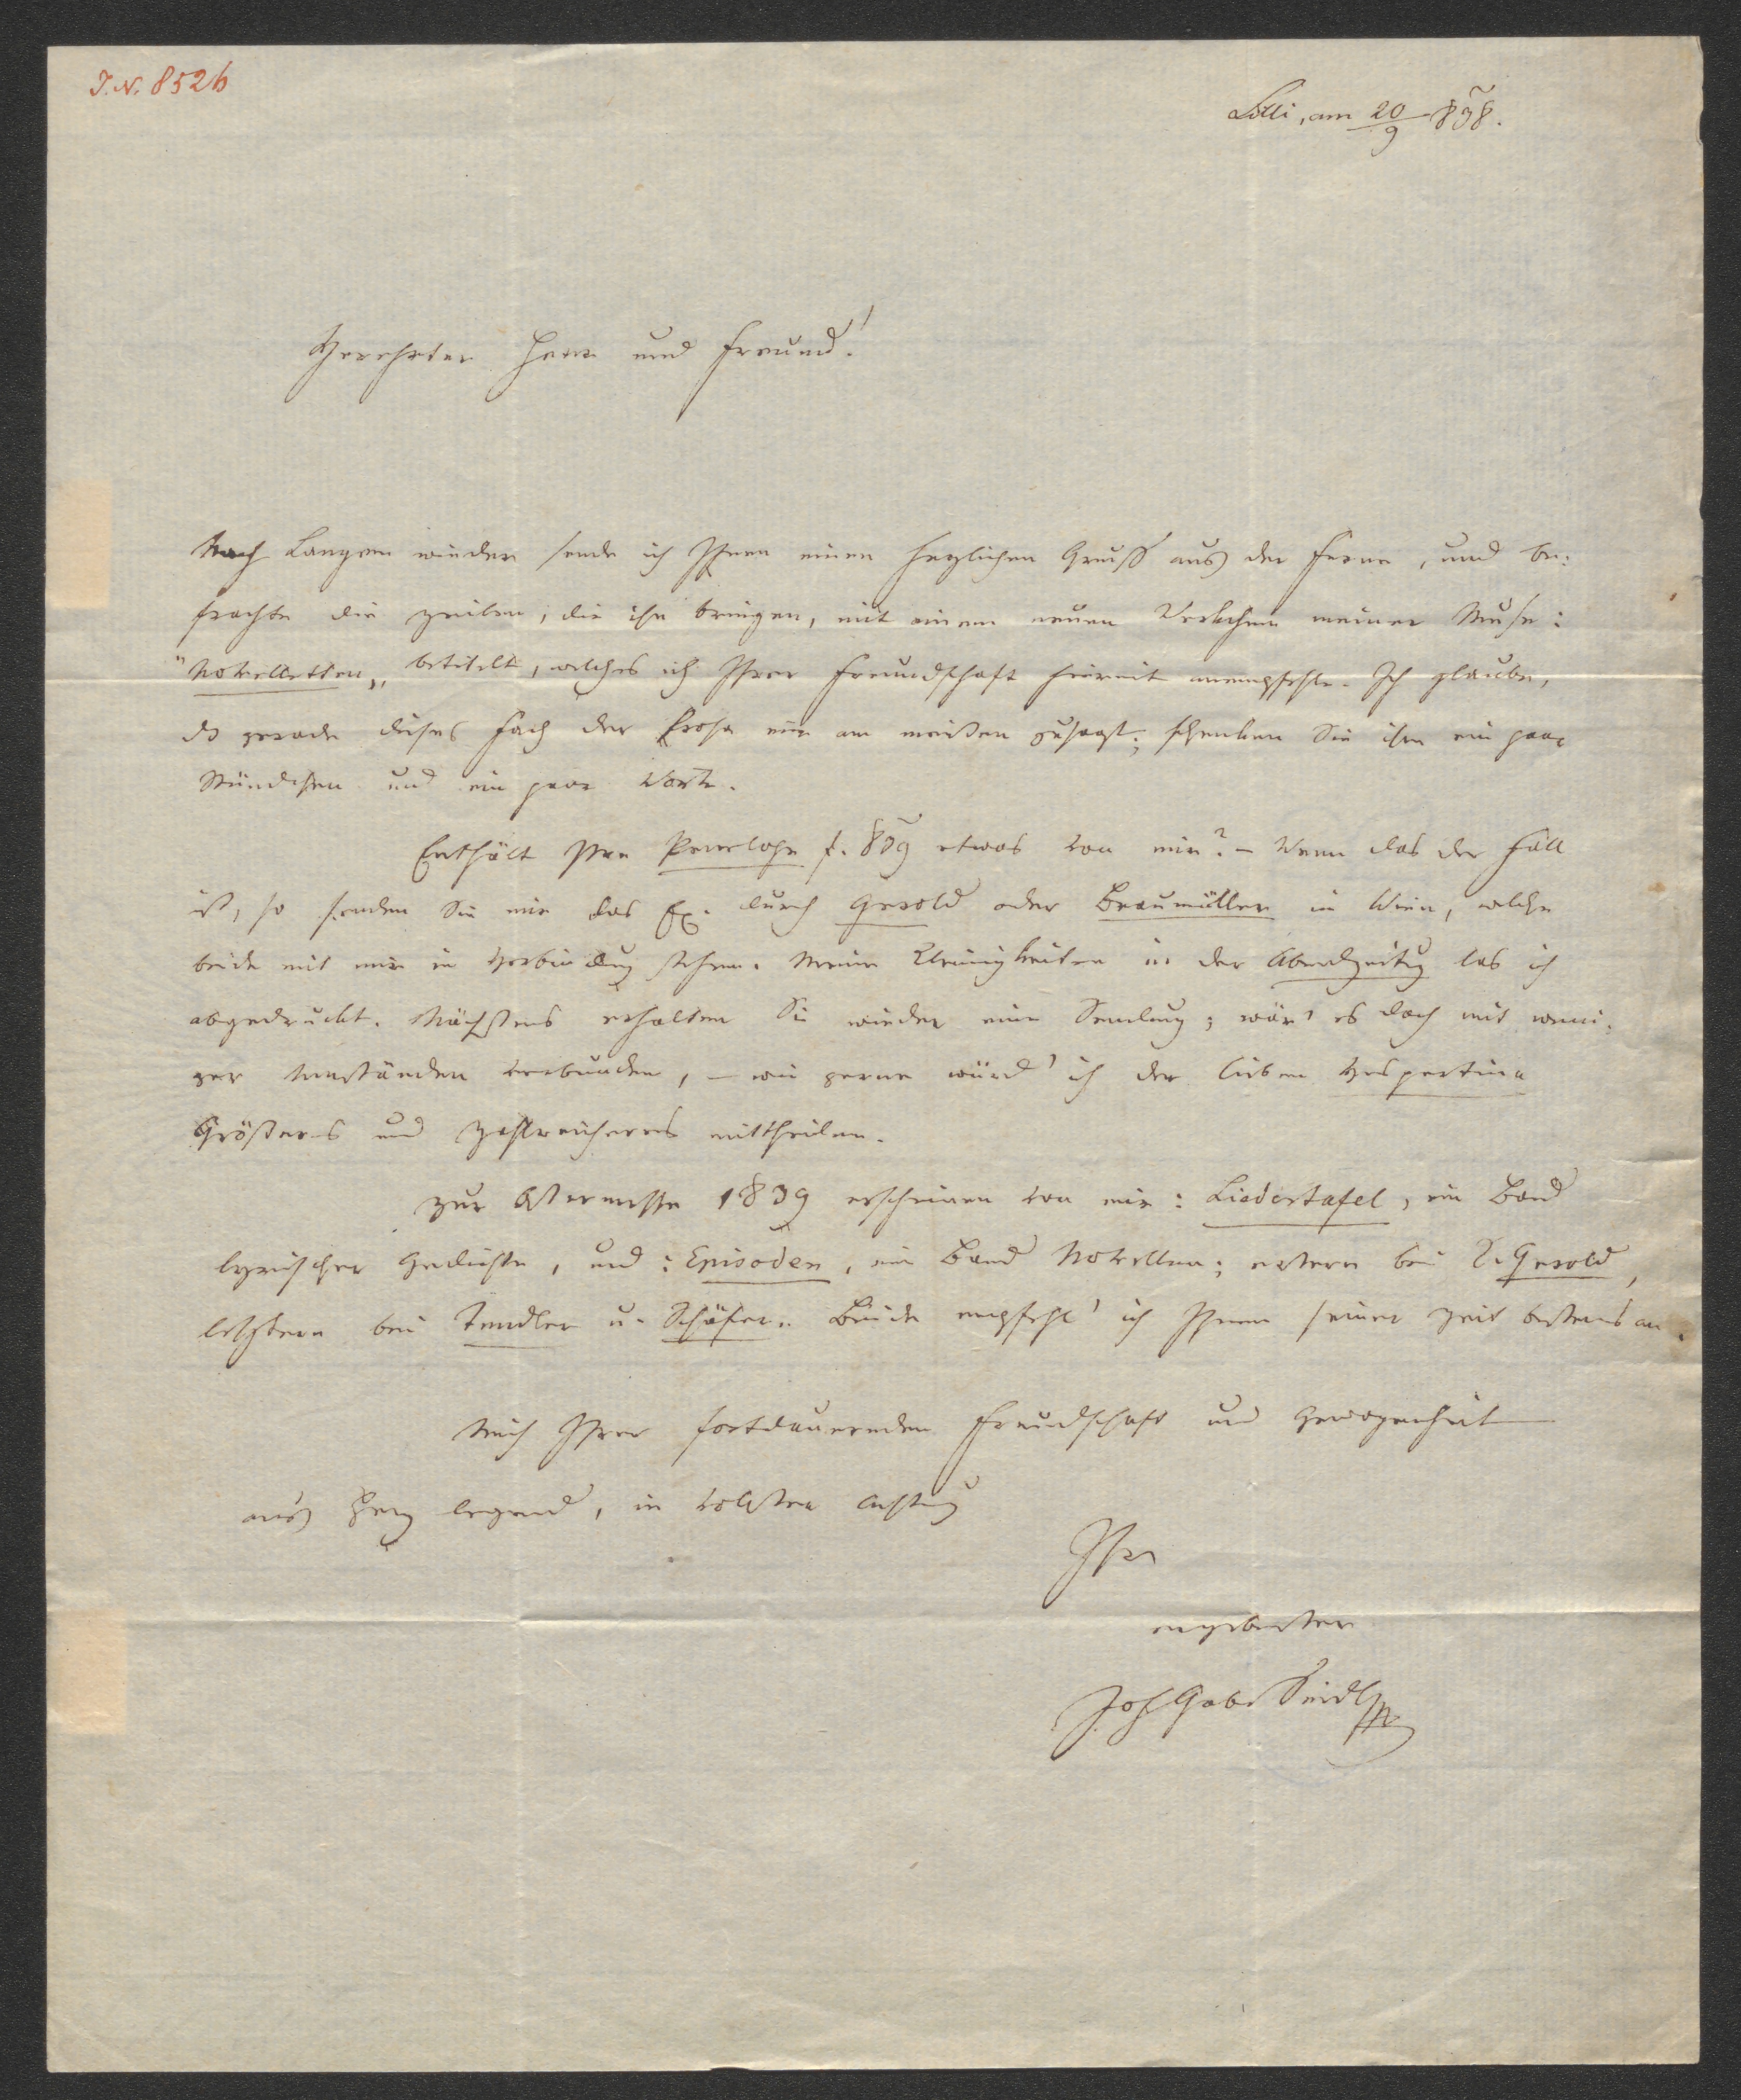 J. N. 8526
Cilli, am 20/9 838.
Verehrter Herr und Freund!
Nach Langem wieder sende ich Ihnen einen herzlichen Gruß aus der Ferne, und be:
frachte die Zeilen, die ihn bringen, mit einem neuen Werkchen meiner Muse:
"Novelletten„ betitelt, welches ich Ihrer Freundschaft hiermit anempfehle. Ich glaube,
dß gerade dieses Fach der Prosa mir am meisten zusagt; schenken Sie ihm ein paar
Stündchen und ein paar Worte.
Enthält Ihre Penelope f. 839 etwas von mir? – Wenn das der Fall
ist, so senden Sie mir das Ex. durch Gerold oder Braumüller in Wien, welche
beide mit mir in Verbindung stehen. Meine Kleinigkeiten in der Abendzeitung las ich
abgedruckt. Nächstens erhalten Sie wieder eine Sendung; wär' es doch mit weni:
ger Umständen verbunden, – wie gerne würd' ich der lieben Vespertina
Größeres und Zahlreicheres mittheilen.
Zur Ostermesse 1839 erscheinen von mir: Liedertafel, ein Band
lyrischer Gedichte, und: Episoden, ein Band Novellen; erstere bei C. Gerold,
letztere bei Tendler u. Schäfer. Beide empfehl' ich Ihnen seiner Zeit bestens an.
Mich Ihrer fortdauernden Freundschaft und Gewogenheit
ans Herz legend, in vollster Achtung
Ihr
ergebenster
Joh Gab. Seidl